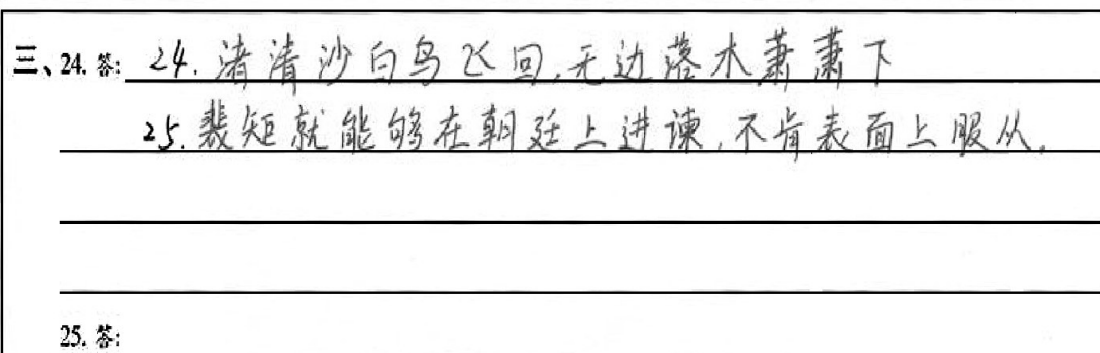 三、24. 答: 24. 渚清沙白鸟飞回,无边落木萧萧下
25. 裴矩就能够在朝廷上进谏,不肯表面上服从.
25. 答: